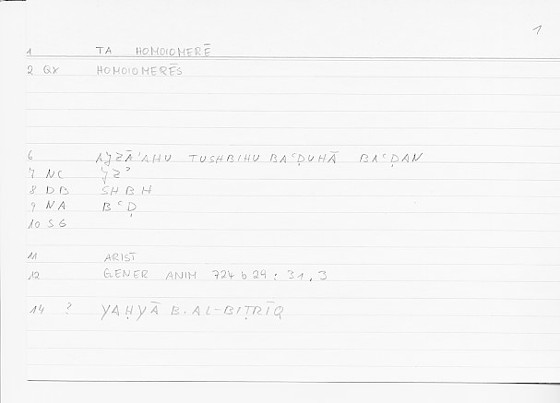 1
1 TA HOMOIOMERĒ
2 GR HOMOIOMERĒS
6 AJZĀʾAHU TUSHBIHU BAʿḌUHĀ BAʿḌAN
7 NC JZʾ
8 DB SHBH
9 NA BʿḌ
10 SG
11 ARIST
12 GENER ANIM 724 b 29 : 31.3
14 ? YAḤYĀ B. AL-BIṬRĪQ